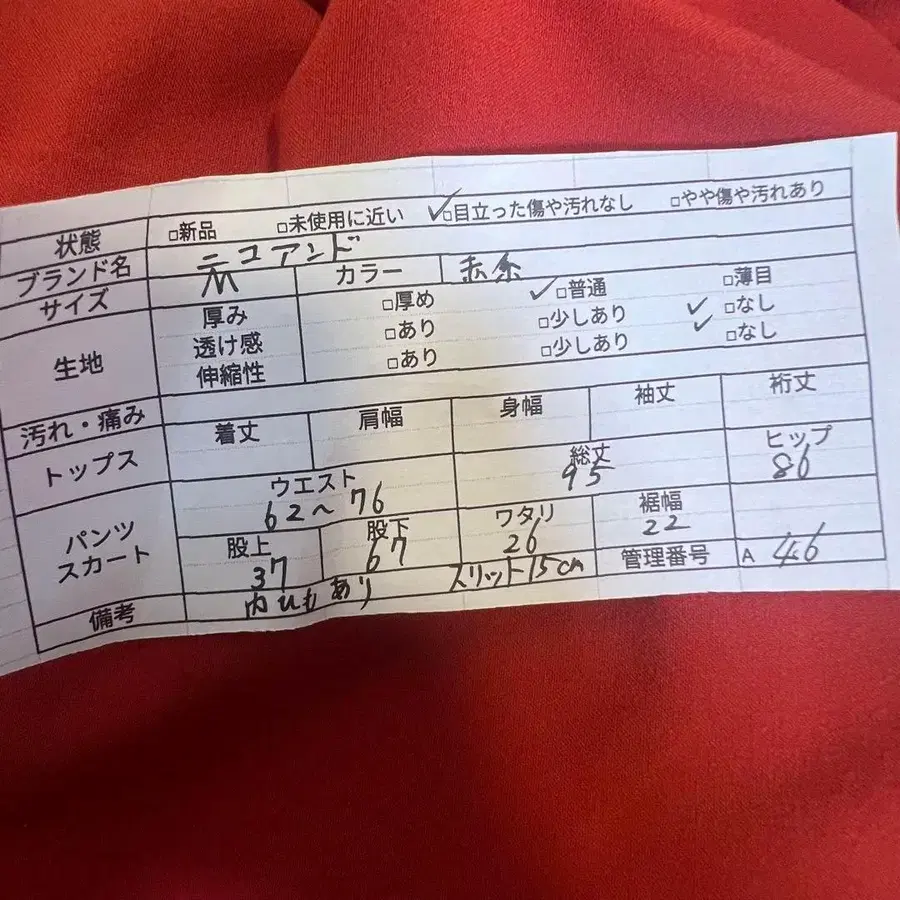 状態 □新品 □未使用に近い ✓□目立った傷や汚れなし □やや傷や汚れあり
ブランド名 ニコアンド
サイズ M カラー 赤系
生地 厚み □厚め ✓□普通 □薄目
透け感 □あり □少しあり ✓□なし
伸縮性 □あり □少しあり ✓□なし
汚れ・痛み
トップス 着丈 肩幅 身幅 袖丈 裄丈
パンツ スカート ウエスト 62～76 総丈 95 ヒップ 86
股上 37 股下 67 ワタリ 26 裾幅 22
備考 内ひもあり スリット15cm 管理番号 A 446